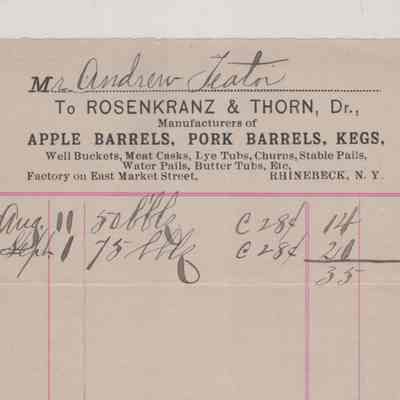 Mr. Andrew Teator
To ROSENKRANZ & THORN, Dr.,
Manufacturers of
APPLE BARRELS, PORK BARRELS, KEGS,
Well Buckets, Meat Casks, Lye Tubs, Churns, Stable Pails,
Water Pails, Butter Tubs, Etc.
Factory on East Market Street, RHINEBECK, N. Y.
Aug. 11 50 bbls C 28¢ 14
Sept. 1 75 bbls C 28¢ 20
35